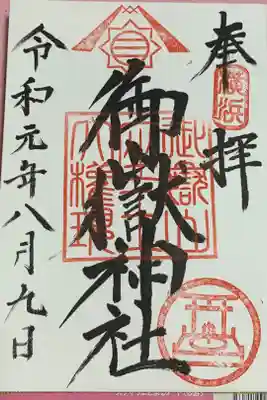 奉拝
横浜
御嶽神社
令和元年八月九日